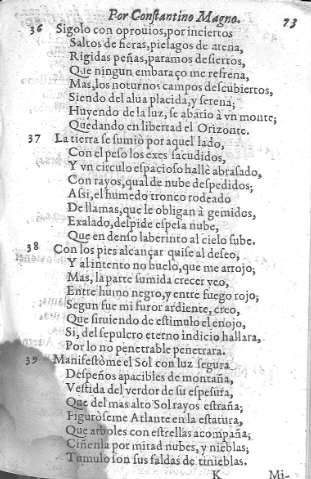 Por Conſtantino Magno. 73
36 Sigolo con oprouios, por inciertos
Saltos de fieras, pielagos de arena,
Rigidas peñas, paramos deſiertos,
Que ningun embaraço me refrena,
Mas, los noturnos campos deſcubiertos,
Siendo del alua placida, y ſerena;
Huyendo de la luz, ſe abatio à vn monte;
Quedando en libertad el Orizonte.
37 La tierra ſe ſumio por aquel lado,
Con el peſo los exes ſacudidos,
Y vn circulo eſpacioſo hallè abraſado,
Con rayos, qual de nube deſpedidos;
Aſsi, el humedo tronco rodeado
De llamas, que le obligan à gemidos,
Exalado, deſpide eſpeſa nube,
Que en denſo laberinto al cielo ſube.
38 Con los pies alcançar quiſe al deſeo,
Y al intento no buelo, que me arrojo;
Mas, la parte ſumida crecer veo,
Entre humo negro, y entre fuego rojo;
Segun fue mi furor ardiente, creo,
Que ſiruiendo de eſtimulo el enojo,
Si, del ſepulcro eterno indicio hallara,
Por lo no penetrable penetrara.
39 Manifeſtòme el Sol con luz ſegura
Deſpeños apacibles de montaña,
Veſtida del verdor de ſu eſpeſura,
Que del mas alto Sol rayos eſtraña;
Figuròſeme Atlante en la eſtatura,
Que arboles con eſtrellas acompaña;
Ciñenla por mitad nubes, y nieblas;
Tumulo ſon ſus faldas de tinieblas.
K Mi-